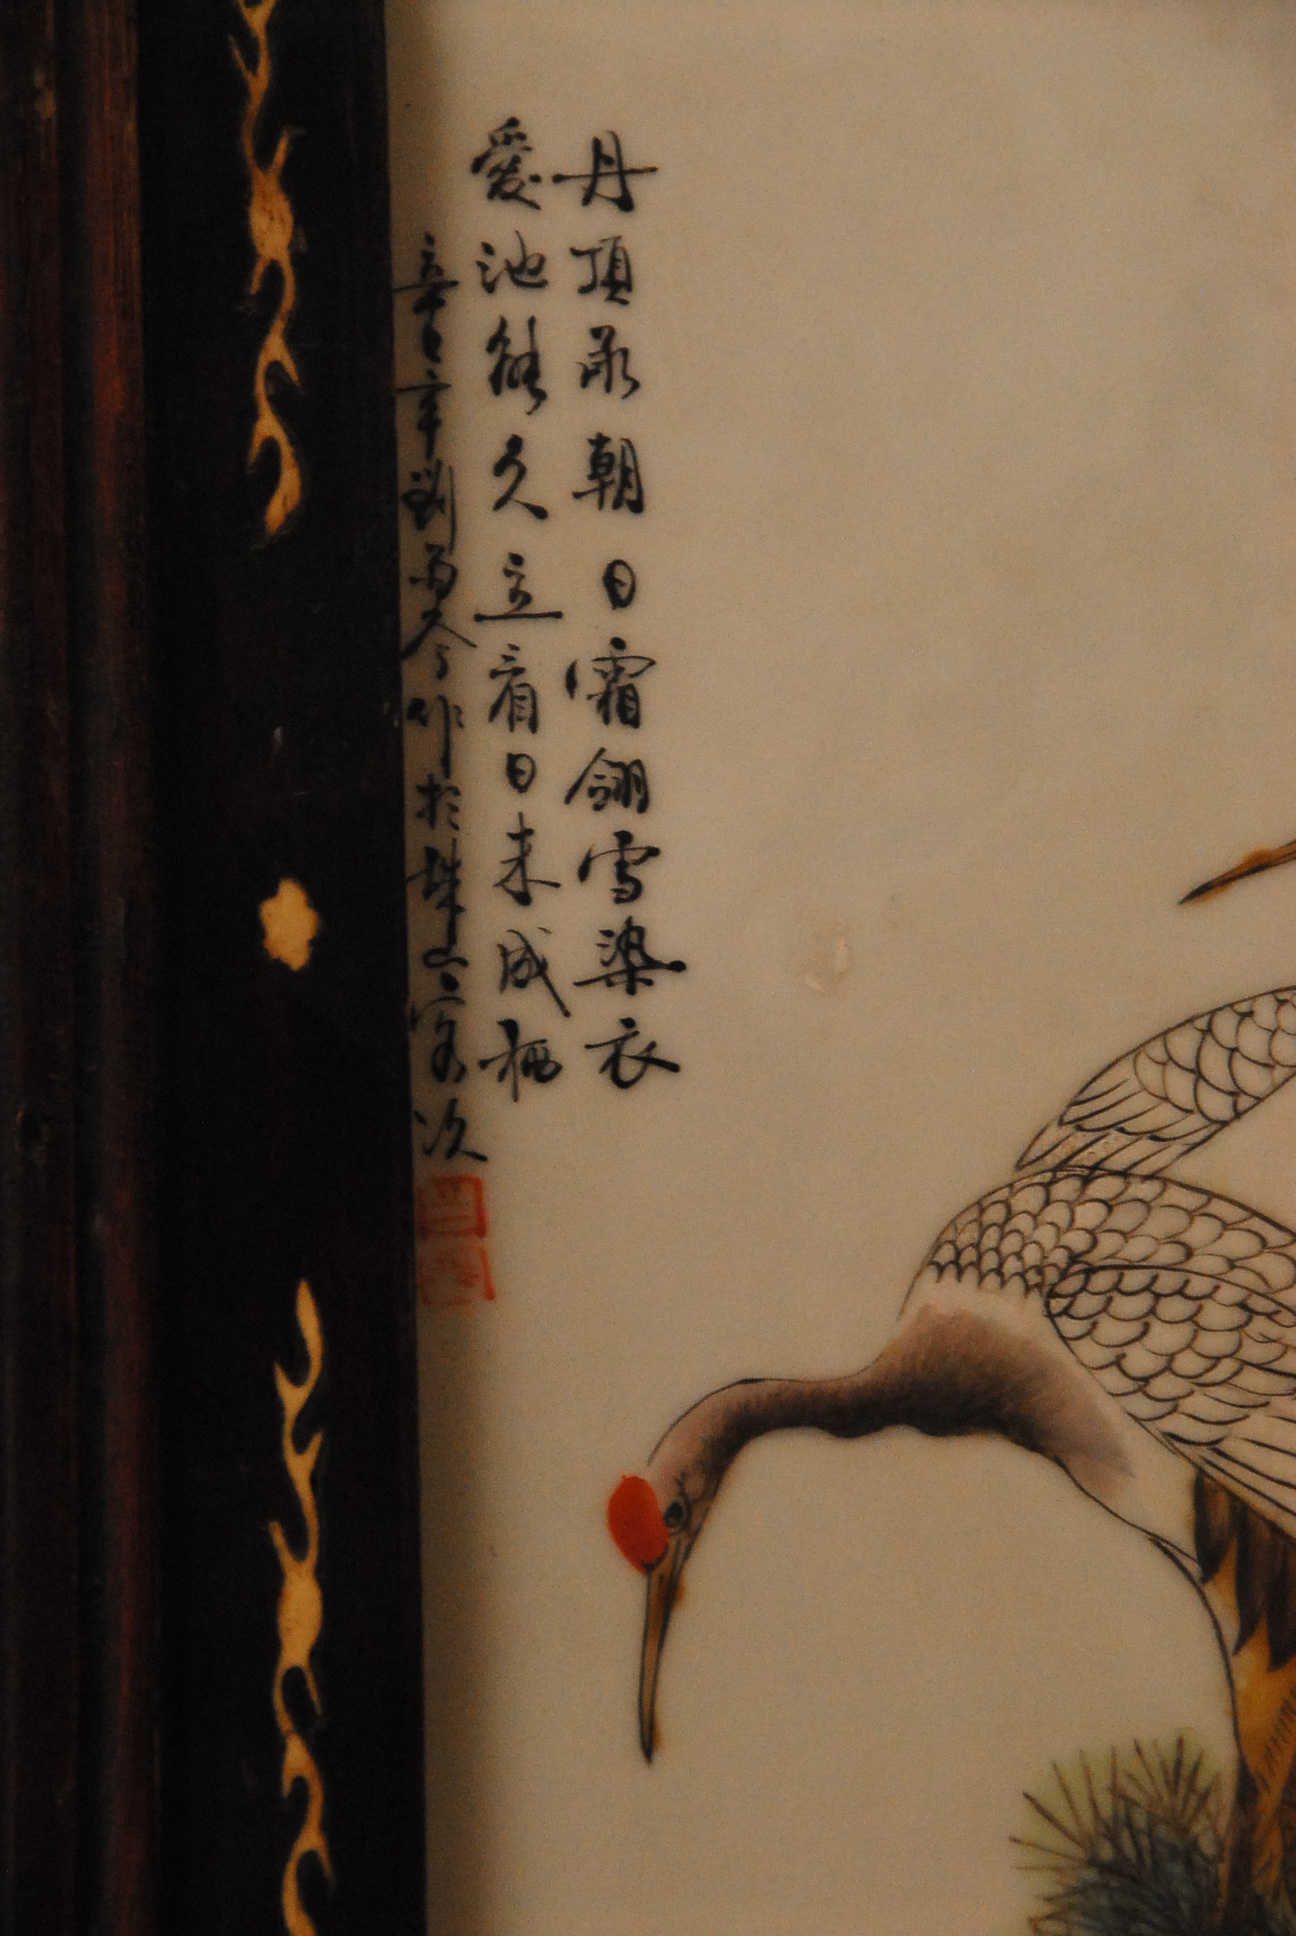 丹頂承朝日霜翎雪染衣
愛池能久立看日未成栖
辛酉年劉雨人作於珠山客次